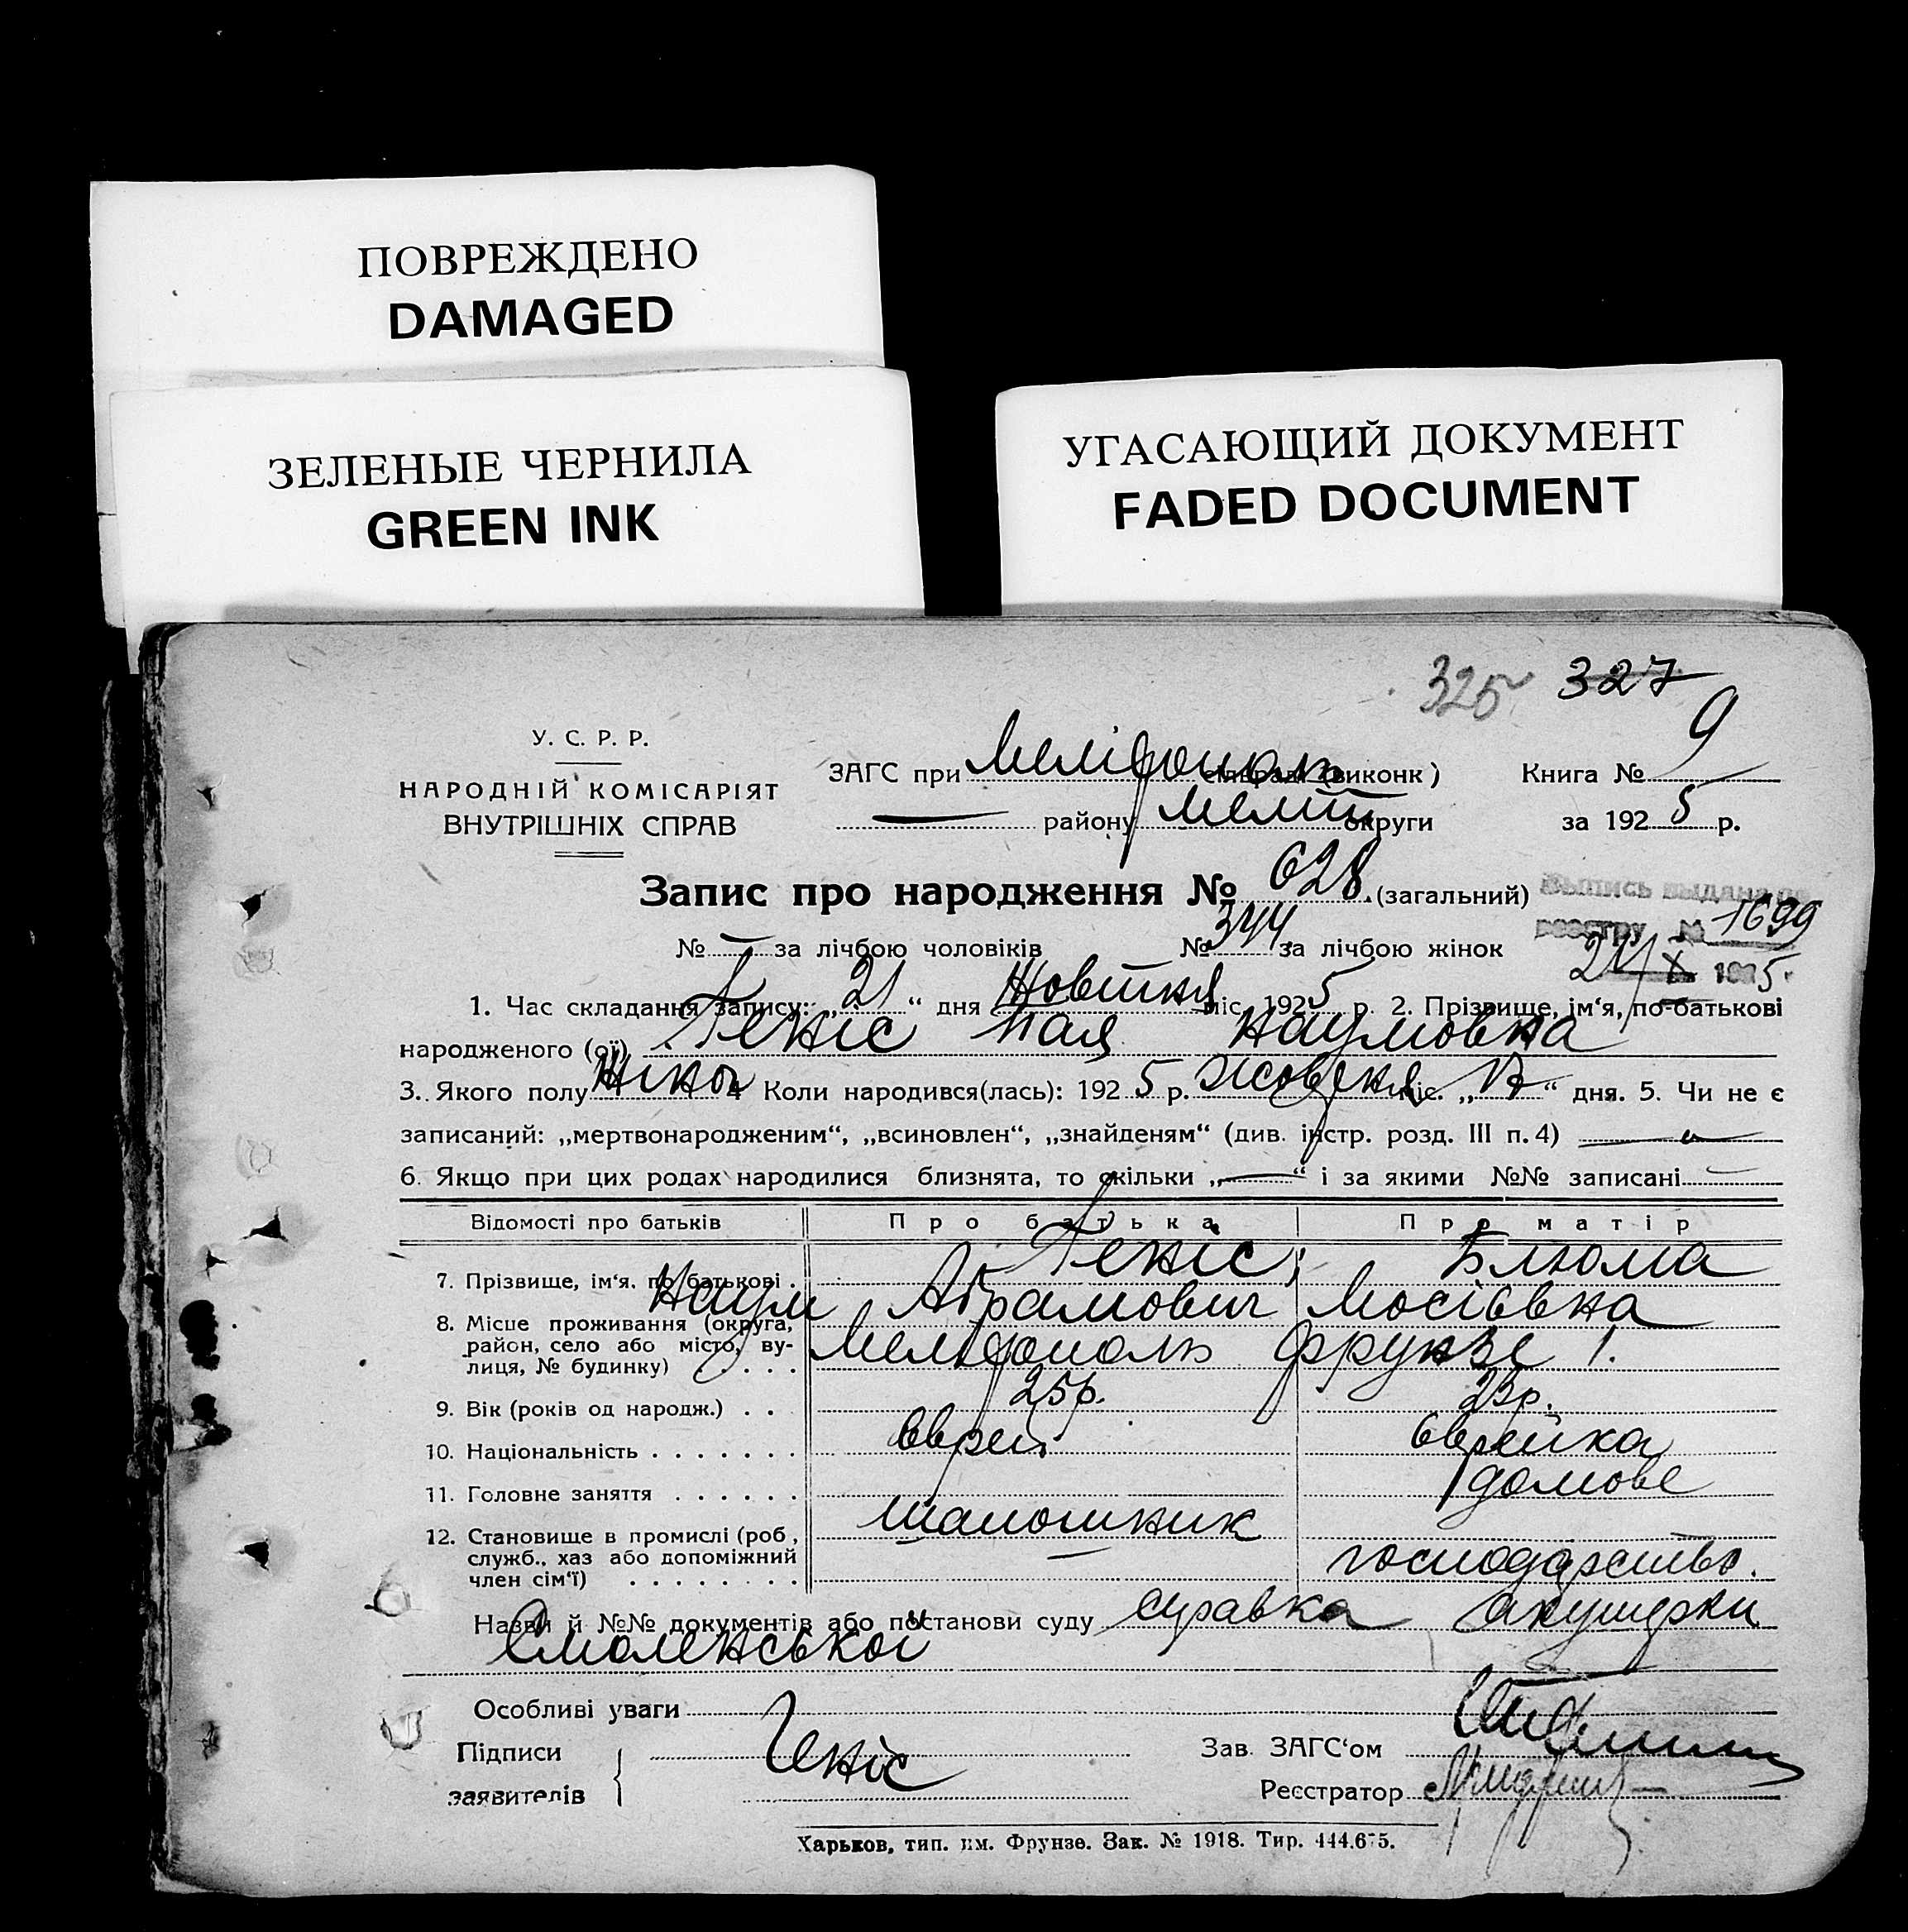 ПОВРЕЖДЕНО
DAMAGED
ЗЕЛЕНЫЕ ЧЕРНИЛА
GREEN INK
УГАСАЮЩИЙ ДОКУМЕНТ
FADED DOCUMENT
325 327
У. С. Р. Р.
НАРОДНІЙ КОМІСАРІЯТ
ВНУТРІШНІХ СПРАВ
ЗАГС при Мелітополь сільраді (виконк) Книга № 9
— району Меліт округи за 1925 р.
Запис про народження № 628. (загальний)
Выпись выдана по
реестру № 1699
21/X 1925.
№ — за лічбою чоловіків № 344 за лічбою жінок
1. Час складання запису: „21“ дня Жовтня міс. 1925 р. 2. Прізвище, ім‘я, по-батькові
народженого (ої) Геніс Наумовна
3. Якого полу жіноч 4 Коли народився(лась): 1925 р. Жовтня міс. „ “ дня. 5. Чи не є
записаний: „мертвонародженим“, „всиновлен“, „знайденям“ (див. інстр. розд. III п. 4) —
6. Якщо при цих родах народилися близнята, то скільки „—“ і за якими №№ записані —
Відомості про батьків Про батька Про матір
7. Прізвище, ім‘я, по батькові . Геніс, Блюма
Наум Абрамович Мосіевна
8. Місце проживання (округа,
район, село або місто, ву-
лиця, № будинку) . . . . Мелітополь Фрунзе 1.
9. Вік (років од народж.) . . 25р. 23р.
10. Національність . . . . . . . Єврей Єврейка
11. Головне заняття . . . . . . домове
12. Становище в промислі (роб,
служб., хаз або допоміжний
член сім‘ї) . . . . . . . . шапошник —
господарство.
Назви й №№ документів або постанови суду справка акушерки
Смоленської
Особливі уваги
Підписи
заявителів
Геніс
Зав. ЗАГС‘ом
Реєстратор
Харьков, тип. им. Фрунзе. Зак. № 1918. Тир. 444.675.